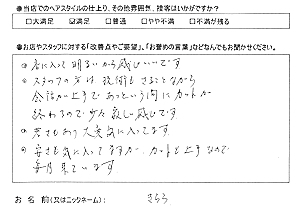 ●当店でのヘアスタイルの仕上り、その他雰囲気、接客はいかがですか?
□大満足 ☑満足 □普通 □やや不満 □不満が残る
●お店やスタッフに対する「改善点やご要望」、「お誉めの言葉」などなんでもお聞かせください。
店に入って明るいから感じいいです
スタッフの方は技術もさることながら
会話が上手であっという間にカットが
終わるので少々寂しい感じです
若さもあり大変気に入ってます。
安さも気に入ってますが、カットも上手なので
毎月来ています。
お名前(又はニックネーム):
きらら